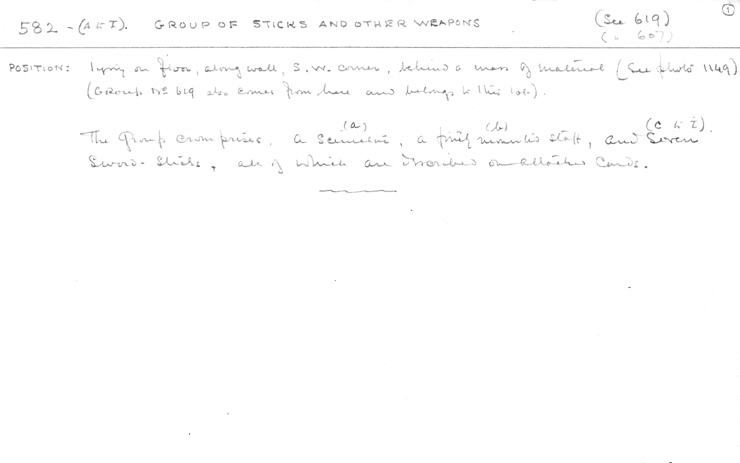 582 - (A to I). GROUP OF STICKS AND OTHER WEAPONS (See 619) ①
(" 607)
POSITION: lying on floor, along wall, S.W. corner, behind a mass of material (See photo 1149)
(Group No 619 also comes from here and belongs to this lot).
(a) (b) (c to i).
The group comprises, a scimitar, a finely mounted staff, and seven
sword-sticks, all of which are described on attached cards.